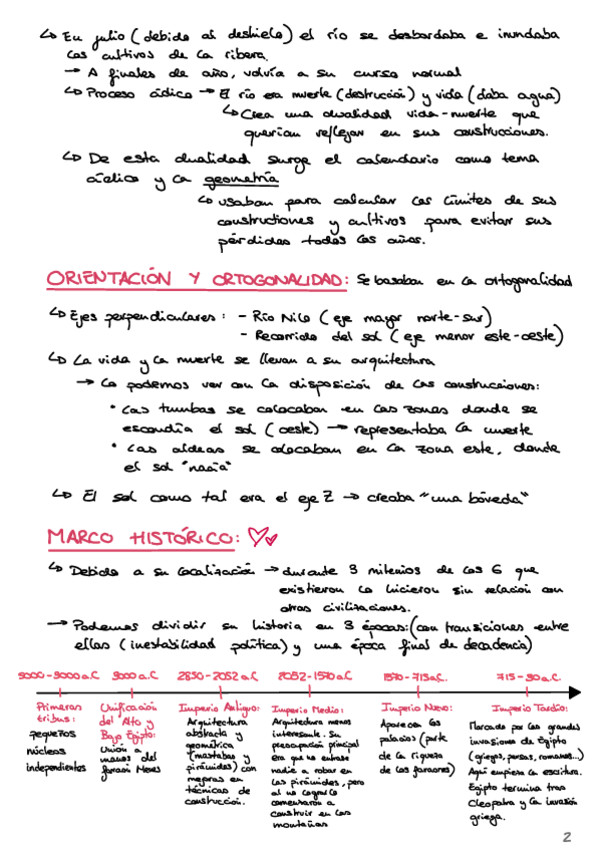 ↳ En julio (debido al deshielo) el río se desbordaba e inundaba
los cultivos de la ribera.
→ A finales de año, volvía a su curso normal
↳ Proceso cíclico → El río era muerte (destrucción) y vida (daba agua)
↳ Crea una dualidad vida-muerte que
querían reflejar en sus construcciones.
↳ De esta dualidad surge el calendario como tema
cíclico y la geometría
↳ usaban para calcular los límites de sus
construcciones y cultivos para evitar sus
pérdidas todos los años.
ORIENTACIÓN Y ORTOGONALIDAD: Se basaban en la ortogonalidad
↳ Ejes perpendiculares: - Río Nilo (eje mayor norte-sur)
- Recorrido del sol (eje menor este-oeste)
↳ La vida y la muerte se llevan a su arquitectura
→ Lo podemos ver con la disposición de las construcciones:
• Las tumbas se colocaban en las zonas donde se
escondía el sol (oeste) → representaba la muerte
• Las aldeas se colocaban en la zona este, donde
el sol "nacía"
↳ El sol como tal era el eje Z → creaba "una bóveda"
MARCO HISTÓRICO:
↳ Debido a su localización → durante 3 milenios de los 6 que
existieron lo hicieron sin relación con
otras civilizaciones.
→ Podemos dividir su historia en 3 épocas: (con transiciones entre
ellas (inestabilidad política) y una época final de decadencia)
5000-3000 a.C
3000 a.C
2850-2052 a.C
2052-1570 a.C
1570-715 a.C.
715-30 a.C
Primeras
tribus:
pequeños
núcleos
independientes
Unificación
del Alto y
Bajo Egipto:
Unión a
manos del
faraón Menes
Imperio Antiguo:
Arquitectura
abstracta y
geométrica
(mastabas y
pirámides) con
mejoras en
técnicas de
construcción.
Imperio Medio:
Arquitectura menos
interesante. Su
preocupación principal
era que no entrase
nadie a robar en
las pirámides, pero
al no lograrlo
comenzaron a
construir en las
montañas
Imperio Nuevo:
Aparecen los
palacios (parte
de la riqueza
de los faraones)
Imperio Tardío:
Marcado por las grandes
invasiones de Egipto
(griegos, persas, romanos...)
Aquí empieza la escritura.
Egipto termina tras
Cleopatra y la invasión
griega.
2